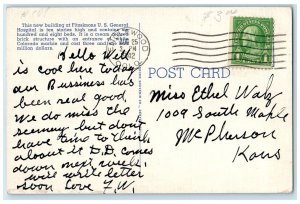 This new building at Fitzsimons U. S. General
Hospital is ten stories high and contains
hundred and eighty beds. It is a cream
brick structure with an entrance of
Colorado marble and cost three and
million dollars.
Hello Will
is cool here today
our Bussiness has
been real good
We do miss the
scenery but dont
have time to think
about it D.D. comes
down next week
will write letter
soon Love F.W.
POST CARD
Miss Ethel Walz
1009 South Maple
McPherson
Kans